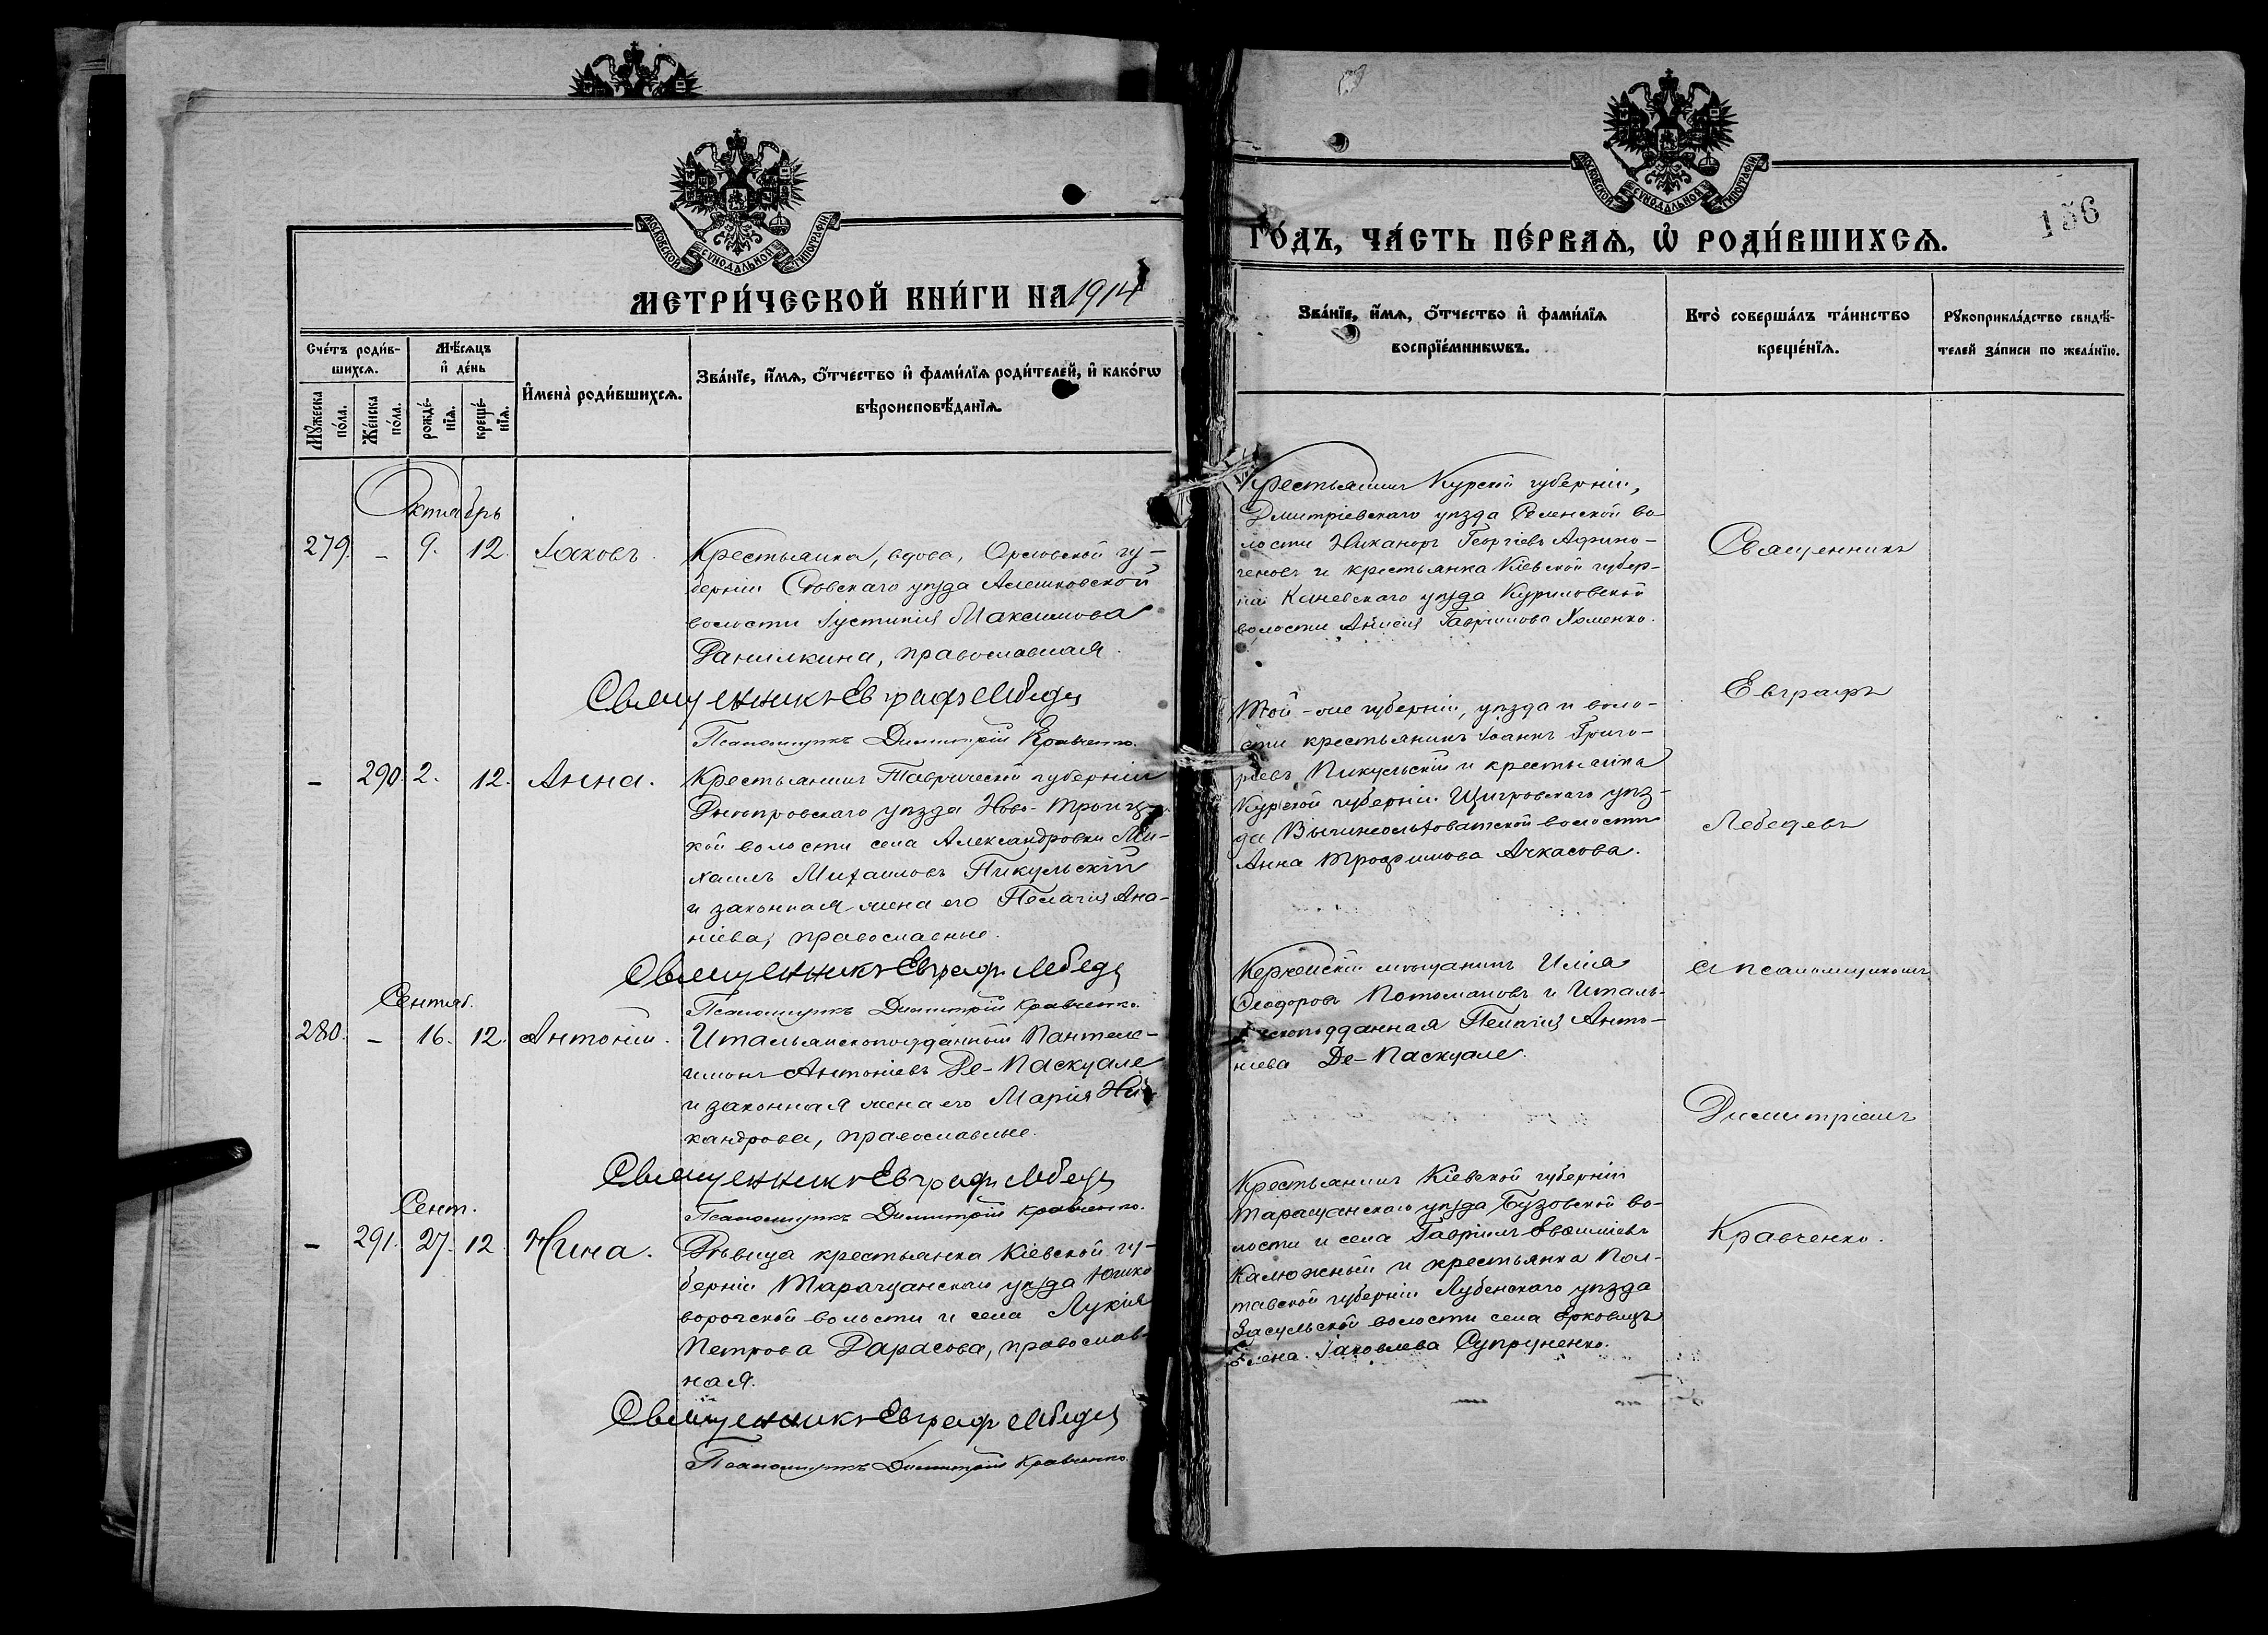 МОСКОВСКОЙ СѴНОДАЛЬНОЙ ТИПОГРАФІИ
МЕТРИ́ЧЕСКОЙ КНИ́ГИ НА 1914
Сче́тъ роди́в-
шихсѧ.
Мѣ́сѧцъ
и҆ де́нь
И҆мена̀ роди́вшихсѧ.
Зва́нїе, и҆́мѧ, ѻ҆́тчество и҆ фами́лїѧ роди́телей, и҆ како́гѡ
вѣроисповѣ́данїѧ.
Мꙋ́жеска
по́ла.
Же́нска
по́ла.
рожде́-
нїѧ.
креще́-
нїѧ.
Октябрь
279. – 9. 12. Іаковъ.
Крестьянка, вдова, Орловской гу-
берніи Сѣвскаго уѣзда Алешковской
волости Іустинія Максимова
Данилкина, православная.
Священникъ Евграфъ Лебедевъ
Псаломщикъ Димитрій Кравченко.
– 290. 2. 12. Анна.
Крестьянинъ Таврической губерніи
Днѣпровскаго уѣзда Ново-Троиц-
кой волости села Александровки Ми-
хаилъ Михаиловъ Пикульскій
и законная жена его Пелагія Ана-
ніева, православные.
Священникъ Евграфъ Лебедевъ
Псаломщикъ Димитрій Кравченко.
Сентяб.
280. – 16. 12. Антоній.
Итальянскоподданный Пантеле-
имонъ Антоніевъ Де-Паскуале
и законная жена его Марія Ни-
кандрова, православные.
Священникъ Евграфъ Лебедевъ
Псаломщикъ Димитрій Кравченко.
Сент.
– 291. 27. 12. Нина.
Дѣвица крестьянка Кіевской гу-
берніи Таращанскаго уѣзда
волости и села Лукія
Петрова Дарасова, православ-
ная.
Священникъ Евграфъ Лебедевъ
Псаломщикъ Димитрій Кравченко.
МОСКОВСКОЙ СѴНОДАЛЬНОЙ ТИПОГРАФІИ
ГО́ДЪ, ЧА́СТЬ ПЕ́РВАѦ, Ѡ҆ РОДИ́ВШИХСѦ.
156
Зва́нїе, и҆́мѧ, ѻ҆́тчество и҆ фами́лїѧ
воспрїе́мникѡвъ.
Кто̀ соверша́лъ та́инство
креще́нїѧ.
Рꙋкоприкла́дство свидѣ́-
телей за́писи по жела́нїю.
Крестьянинъ Курской губерніи,
Дмитріевскаго уѣзда во-
лости Никаноръ Георгіевъ Афино-
геновъ и крестьянка Кіевской губер-
ніи Каневскаго уѣзда Куриловской
волости Анисія Гавриилова Хоменко.
Той-же губерніи, уѣзда и воло-
сти крестьянинъ Іоаннъ Григо-
ріевъ Пикульскій и крестьянка
Курской губерніи Щигровскаго уѣз-
да волости
Анна Трофимова Ачкасова.
Керченскій мѣщанинъ Илія
Ѳеодоровъ Потомановъ и Италь-
янскоподданная Пелагія Анто-
ніева Де-Паскуале.
Крестьянинъ Кіевской губерніи
Таращанскаго уѣзда Бузовской во-
лости и села Гавріилъ Евѳиміевъ
Калюжный и крестьянка Пол-
тавской губерніи Лубенскаго уѣзда
Засульской волости села Ерковецъ
Елена Іаковлева Супруненко.
Священникъ
Евграфъ
Лебедевъ
съ псаломщикомъ
Димитріемъ
Кравченко.